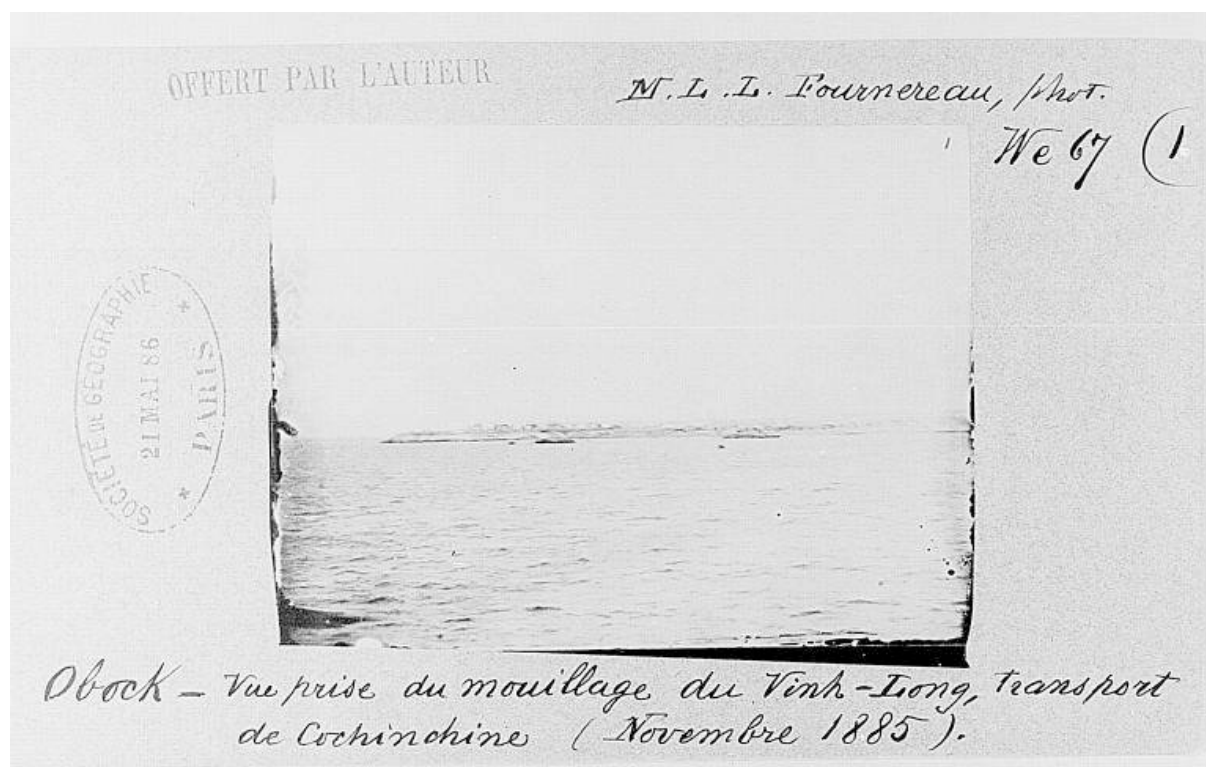 OFFERT PAR L'AUTEUR
M. L. L. Fournereau, phot.
We 67 (1
SOCIÉTÉ DE GÉOGRAPHIE
21 MAI 86
* PARIS *
Obock – Vue prise du mouillage du Vinh-Long, transport
de Cochinchine (Novembre 1885).